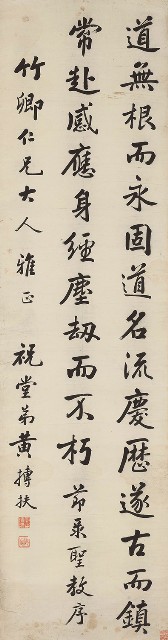 道無根而永固道名流慶歷遂古而鎮
常赴感應身經塵劫而不朽 節录聖教序
竹卿仁兄大人雅正 祝堂弟黃摶扶